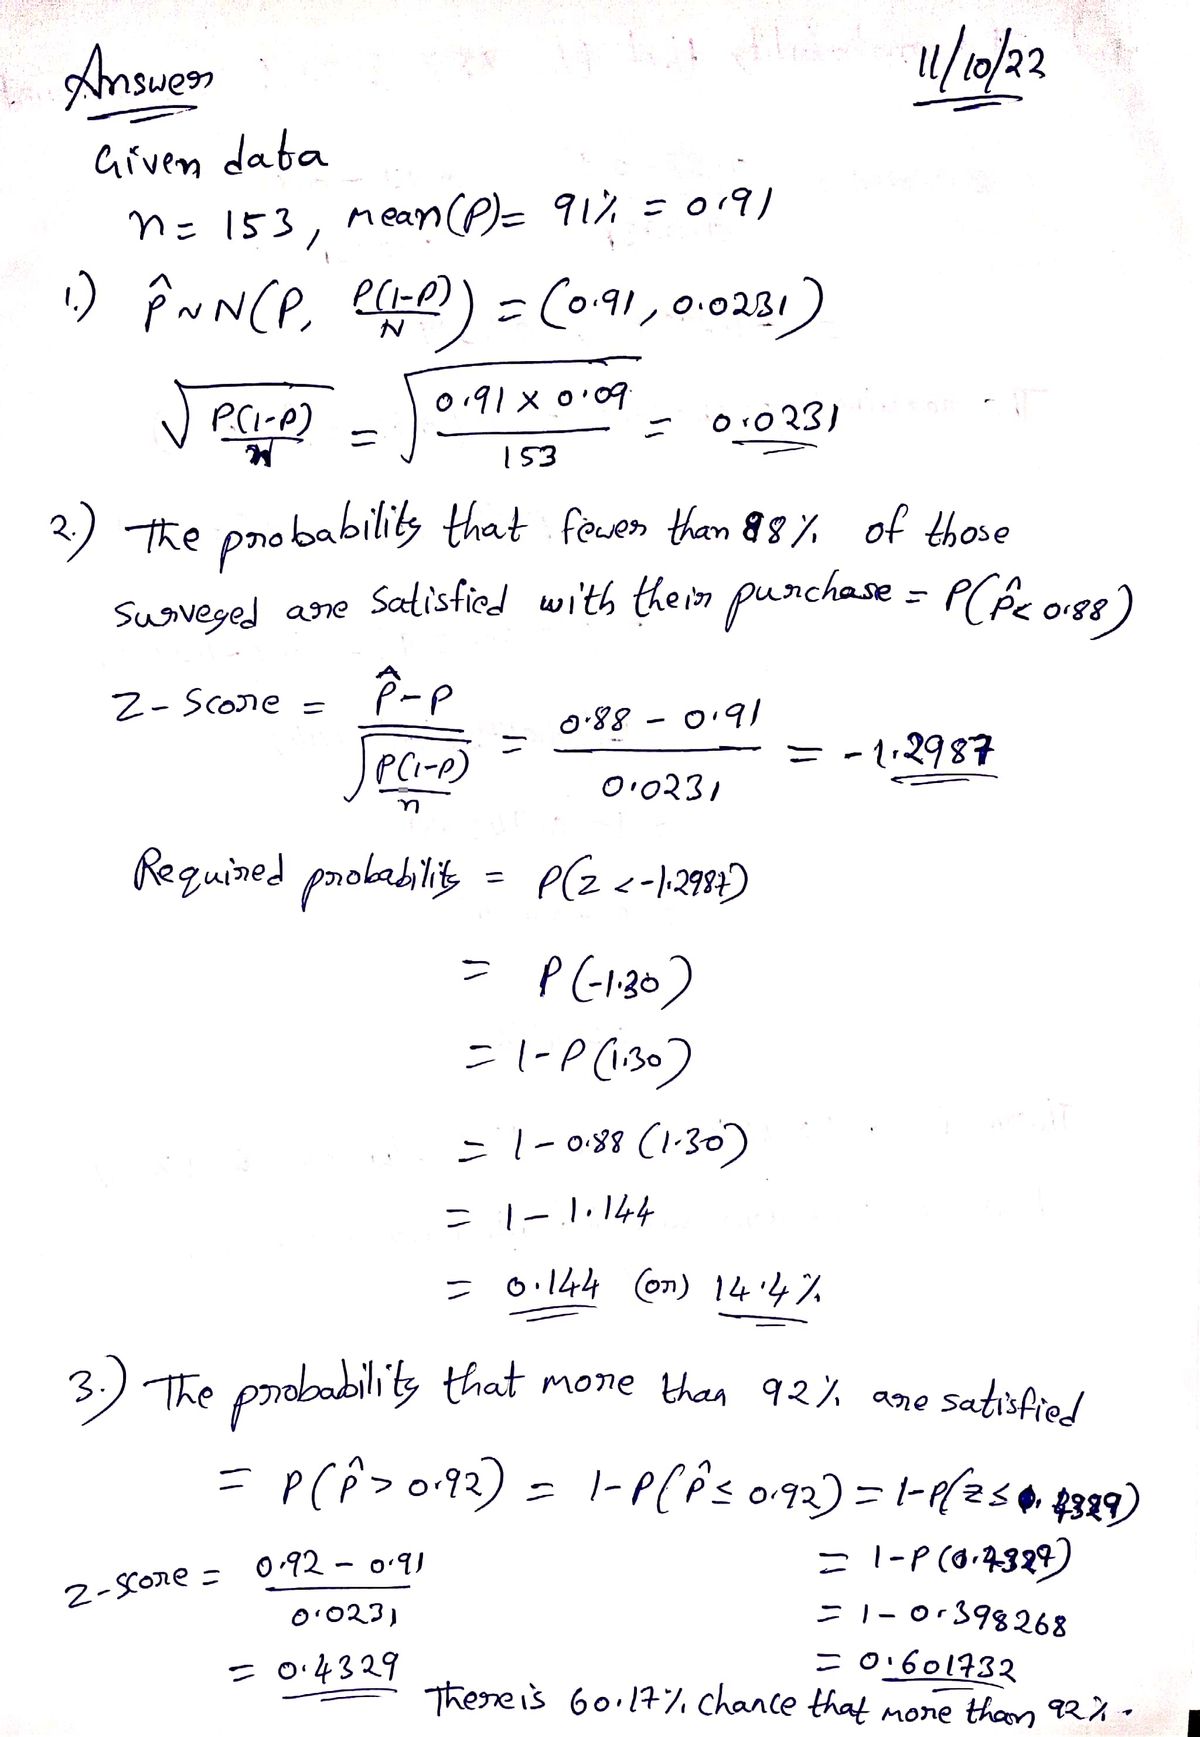 Answer
11/10/22
Given data
n = 153, mean(P) = 91% = 0.91
1.) p̂ ~ N(P, P(1-P)/N) = (0.91, 0.0231)
√(P(1-P)/n) = √(0.91 × 0.09/153) = 0.0231
2.) The probability that fewer than 88% of those
Surveyed are Satisfied with their purchase = P(p̂ < 0.88)
Z-Score = (p̂ - P)/√(P(1-P)/n) = (0.88 - 0.91)/0.0231 = -1.2987
Required probability = P(Z < -1.2987)
= P(-1.30)
= 1 - P(1.30)
= 1 - 0.88 (1.30)
= 1 - 1.144
= 0.144 (or) 14.4%
3.) The probability that more than 92% are satisfied
= P(p̂ > 0.92) = 1 - P(p̂ ≤ 0.92) = 1 - P(Z ≤ 0.4329)
Z-Score = (0.92 - 0.91)/0.0231
= 1 - P(0.4329)
= 1 - 0.398268
= 0.4329
= 0.601732
There is 60.17% chance that more than 92%.